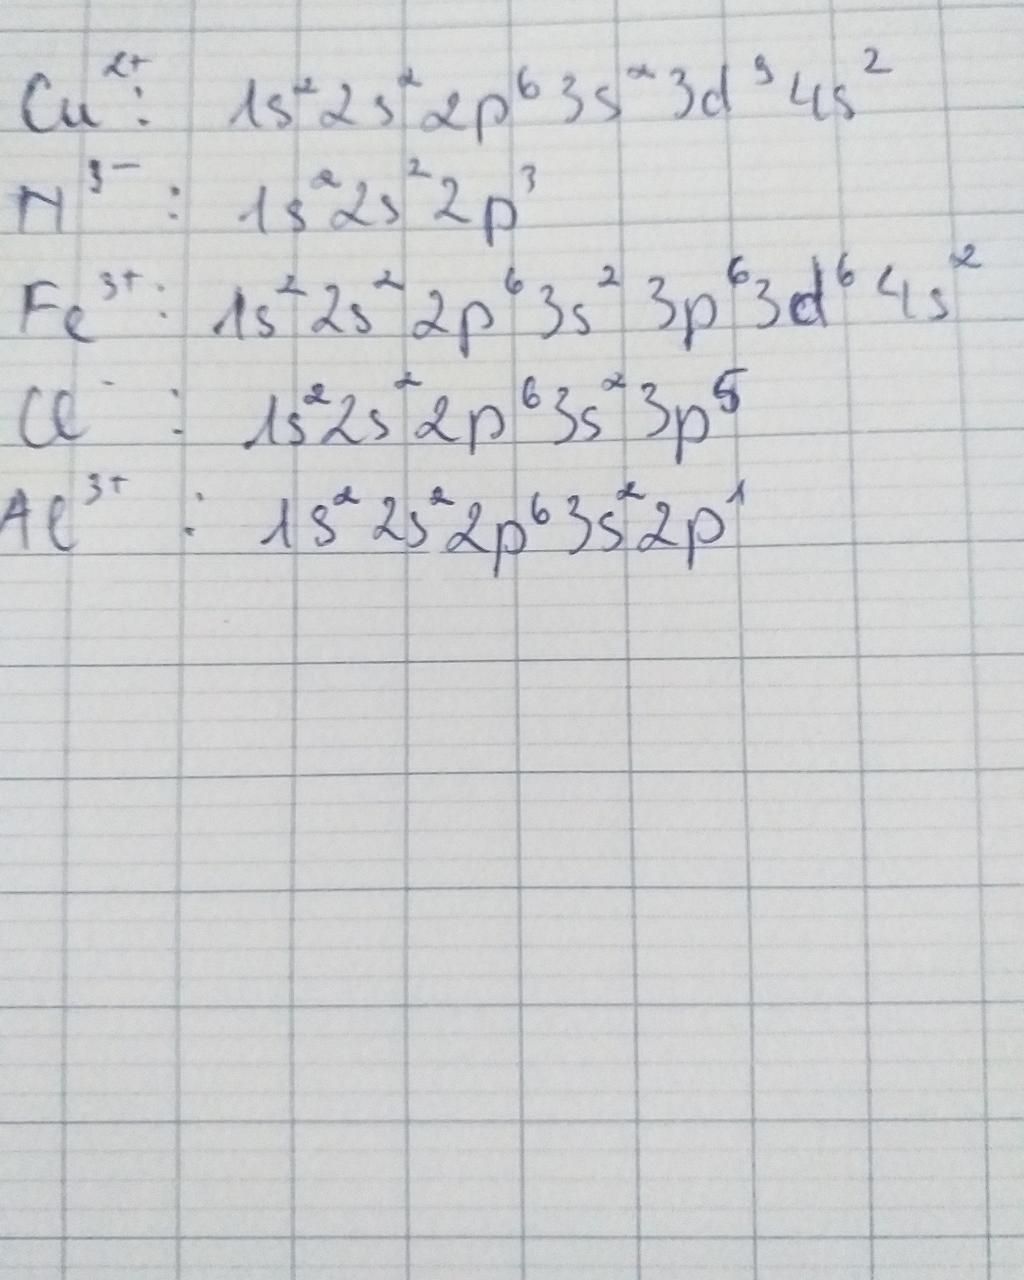 Cu²⁺: 1s² 2s² 2p⁶ 3s² 3d⁹ 4s²
N³⁻ : 1s² 2s² 2p³
Fe³⁺: 1s² 2s² 2p⁶ 3s² 3p⁶ 3d⁶ 4s²
Cl⁻ : 1s² 2s² 2p⁶ 3s² 3p⁵
Al³⁺ : 1s² 2s² 2p⁶ 3s² 2p¹